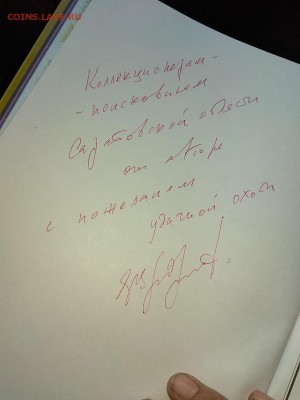 COINS.LAKE.RU
Коллекционерам-
-поисковикам
Саратовской области
от автора
с пожеланием
удачной охоты